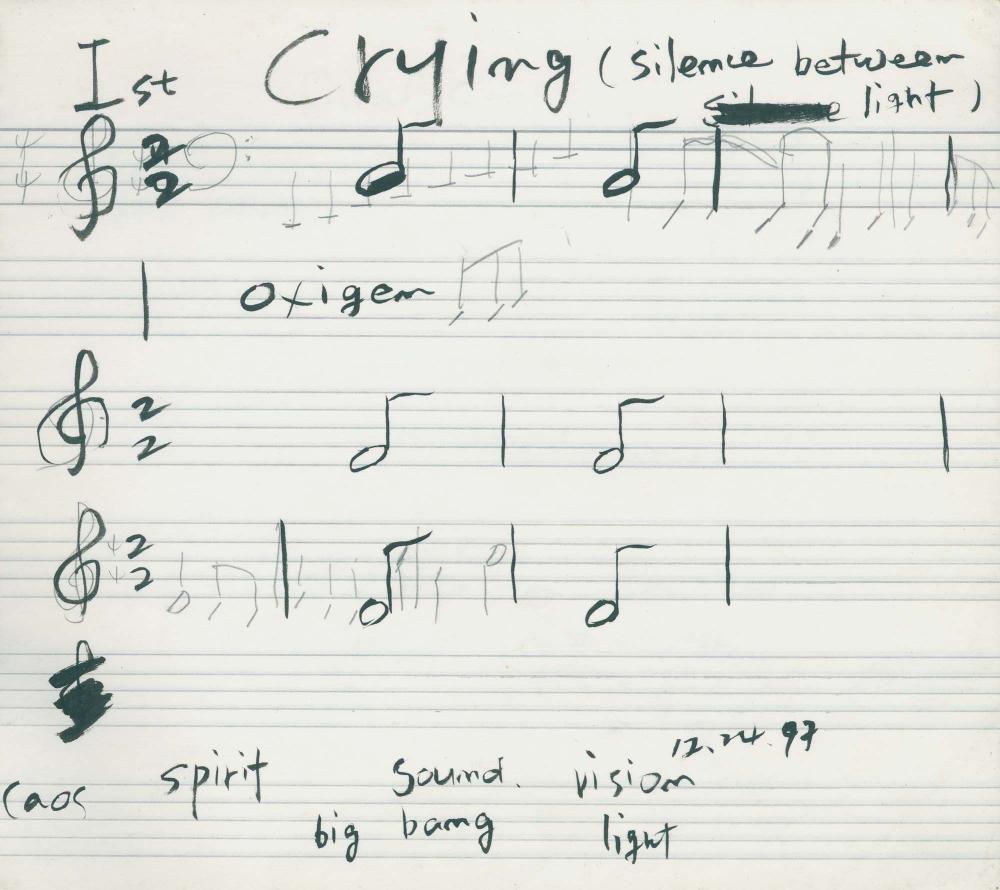 Ist Crying (silence between
light)
2
2
oxigen
2
2
2
2
12.24.97
caos spirit sound. vision
big bang light